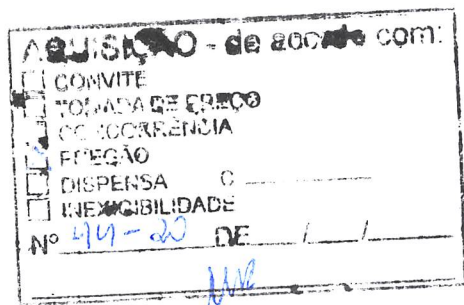 AQUISIÇÃO - de acordo com:
CONVITE
TOMADA DE PREÇO
CONCORRÊNCIA
PREGÃO
DISPENSA C
INEXIGIBILIDADE
Nº 44-20 DE / /